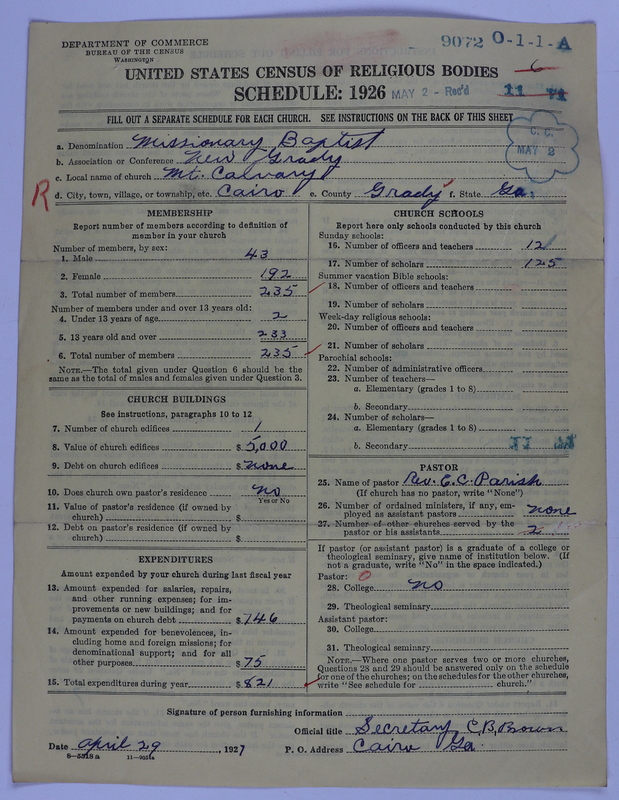 DEPARTMENT OF COMMERCE
BUREAU OF THE CENSUS
WASHINGTON
9072 O-1-1-A
UNITED STATES CENSUS OF RELIGIOUS BODIES
6
SCHEDULE: 1926
MAY 2 - Rec'd
11
FILL OUT A SEPARATE SCHEDULE FOR EACH CHURCH. SEE INSTRUCTIONS ON THE BACK OF THIS SHEET
C. C.
MAY 3
a. Denomination Missionary Baptist
b. Association or Conference New Grady
c. Local name of church Mt. Calvary
R
d. City, town, village, or township, etc. Cairo e. County Grady f. State Ga.
MEMBERSHIP
Report number of members according to definition of member in your church
Number of members, by sex:
1. Male 43
2. Female 192
3. Total number of members 235
Number of members under and over 13 years old:
4. Under 13 years of age 2
5. 13 years old and over 233
6. Total number of members 235
NOTE.—The total given under Question 6 should be
same as the total of males and females given under Question 3.
CHURCH BUILDINGS
See instructions, paragraphs 10 to 12
7. Number of church edifices 1
8. Value of church edifices $5,000
9. Debt on church edifices $none
10. Does church own pastor's residence no
Yes or No
11. Value of pastor's residence (if owned by
church) $
12. Debt on pastor's residence (if owned by
church) $
EXPENDITURES
Amount expended by your church during last fiscal year
13. Amount expended for salaries, repairs,
and other running expenses; for im-
provements or new buildings; and for
payments on church debt $746
14. Amount expended for benevolences, in-
cluding home and foreign missions; for
denominational support; and for all
other purposes $75
15. Total expenditures during year $821
CHURCH SCHOOLS
Report here only schools conducted by this church
Sunday schools:
16. Number of officers and teachers 12
17. Number of scholars 125
Summer vacation Bible schools:
18. Number of officers and teachers
19. Number of scholars
Week-day religious schools:
20. Number of officers and teachers
21. Number of scholars
Parochial schools:
22. Number of administrative officers
23. Number of teachers—
a. Elementary (grades 1 to 8)
b. Secondary
24. Number of scholars—
a. Elementary (grades 1 to 8)
b. Secondary
PASTOR
25. Name of pastor Rev. E. C. Parish
(If church has no pastor, write "None")
26. Number of ordained ministers, if any, em-
ployed as assistant pastors none
27. Number of other churches served by the
pastor or his assistants 2
If pastor (or assistant pastor) is a graduate of a college or
theological seminary, give name of institution below. (If
not a graduate, write "No" in the space indicated.)
Pastor: O
28. College no
29. Theological seminary
Assistant pastor:
30. College
31. Theological seminary
NOTE.—Where one pastor serves two or more churches,
Questions 28 and 29 should be answered only on the schedule
for one of the churches; on the schedules for the other churches,
write "See schedule for church."
Signature of person furnishing information
Official title Secretary C. B. Brown
Date april 29, 1927 P. O. Address Cairo Ga.
8—5518 a